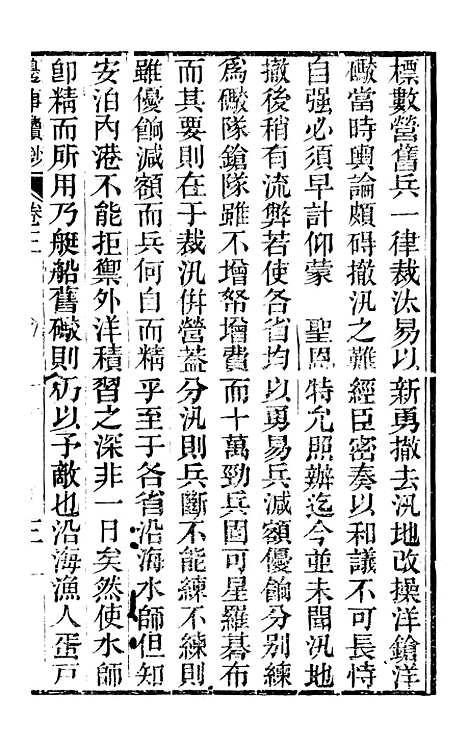 標數營舊兵一律裁汰易以新勇撤去汛地改操洋鎗洋
礮當時輿論頗碍撤汛之難經臣密奏以和議不可長恃
自强必須早計仰蒙　聖恩特允照辦迄今並未聞汛地
撤後稍有流弊若使各省均以勇易兵減額優餉分别練
爲礮隊鎗隊雖不增帑增費而十萬勁兵固可星羅碁布
而其要則在于裁汛併營葢分汛則兵斷不能練不練則
雖優餉減額而兵何自而精乎至于各省沿海水師但知
安泊内港不能拒禦外洋積習之深非一日矣然使水師
卽精而所用乃艇船舊礮則仍以予敵也沿海漁人蛋戸
邊事續鈔　卷三　三